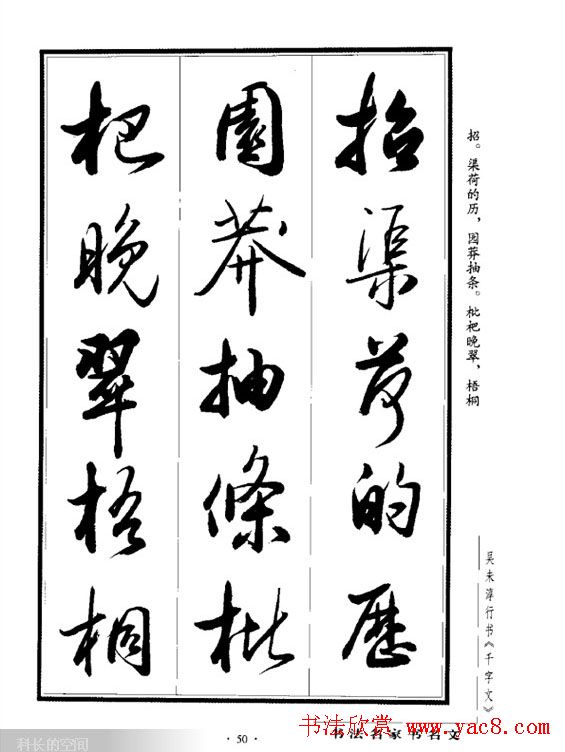 招渠荷的歷
園莽抽條枇
杷晚翠梧桐
招。渠荷的历，园莽抽条。枇杷晚翠，梧桐
吴未淳行书《千字文》
科长的空间
· 50 ·
书法名家书名文
书法欣赏 www.yac8.com